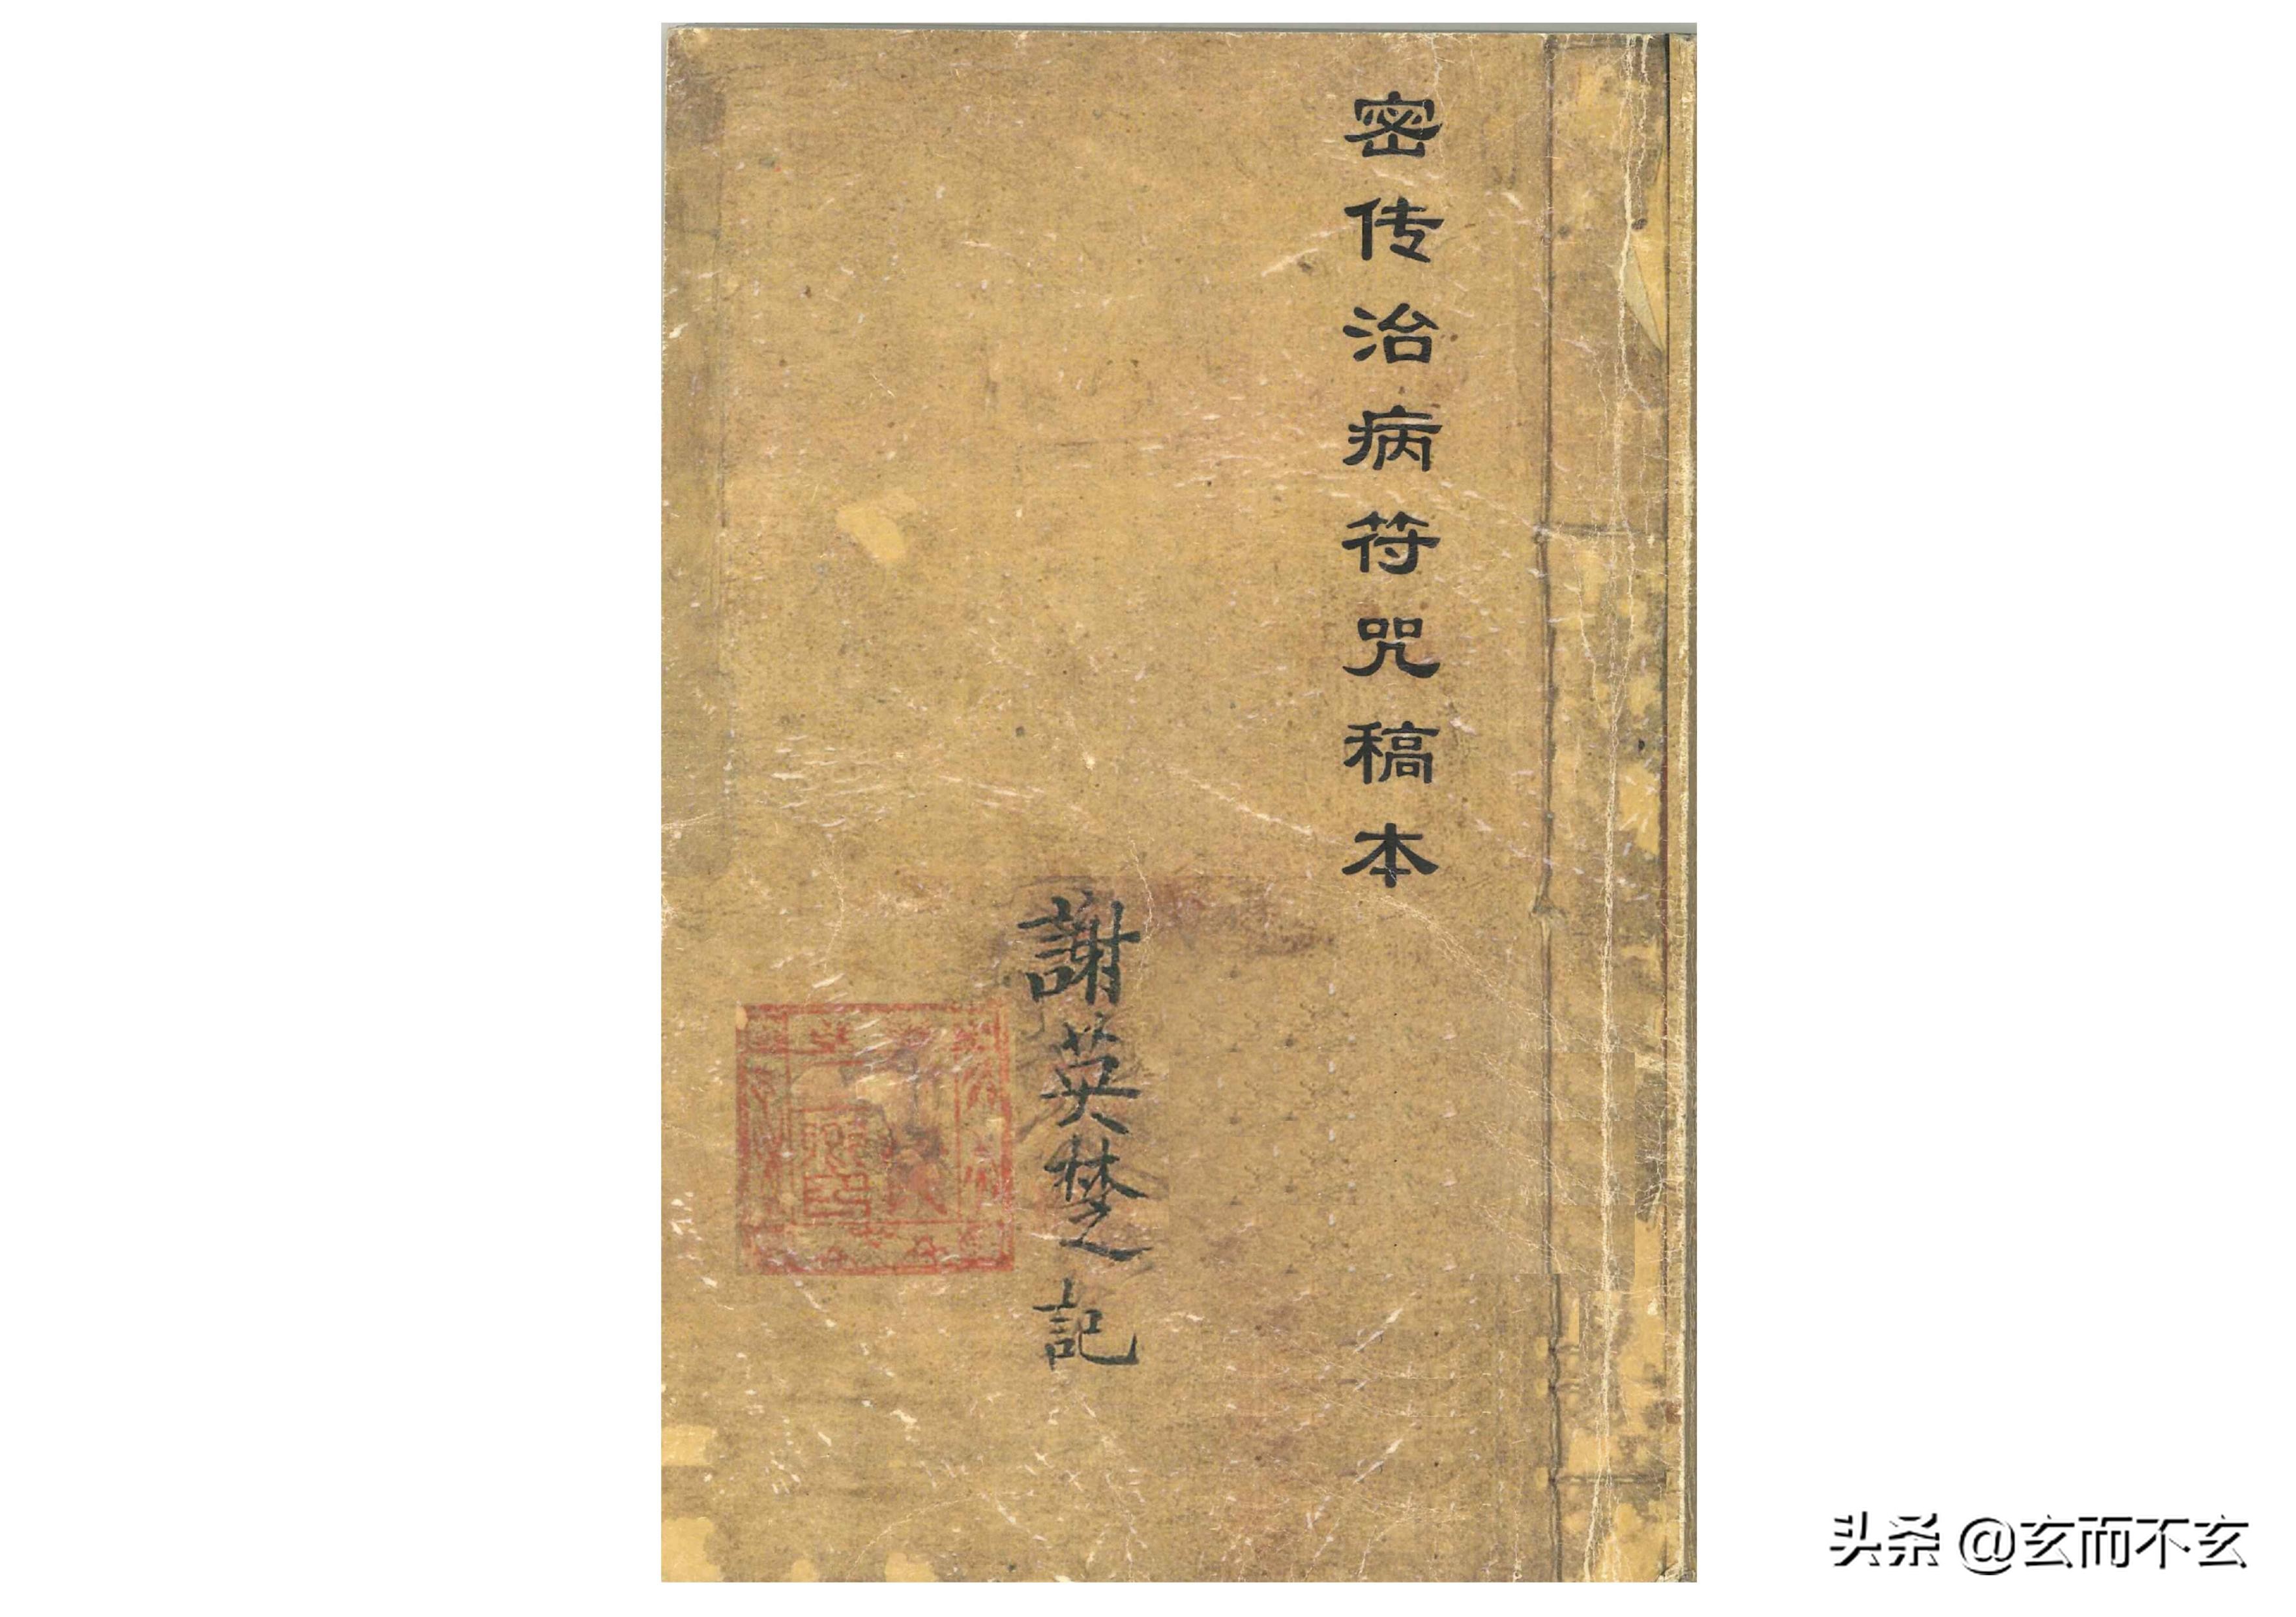 密传治病符咒稿本
謝英楚記
头条 @玄而不玄